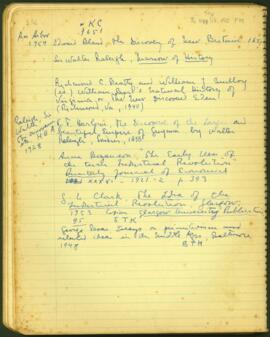 * KC
9651
Ann Arbor
1969
Edward Bland, The Discovery of New Britaine, 1651
Sir Walter Raleigh, Marrow of History
Richmond C. Beatty and William J. Mulloy
(ed.) William Byrd's Natural History of
Virginia, or The New Discovered Eden
(Richmond, Va. 1940)
Raleigh, Sir
Walter
1928
The Discovery of the Large
and Beautiful Empire of Guyana by Walter
Raleigh, London,
Anna Bezanson, "The Early Use of
the term Industrial Revolution"
Quarterly Journal of Economics
XXXVI - 1921-2 p 343
G. N. Clark The Idea of the
Industrial Revolution Glasgow,
1953 Glasgow University Publication
95 BTH
George Boas Essays on primitivism and
related ideas in the Middle Ages Baltimore
1948 BTH